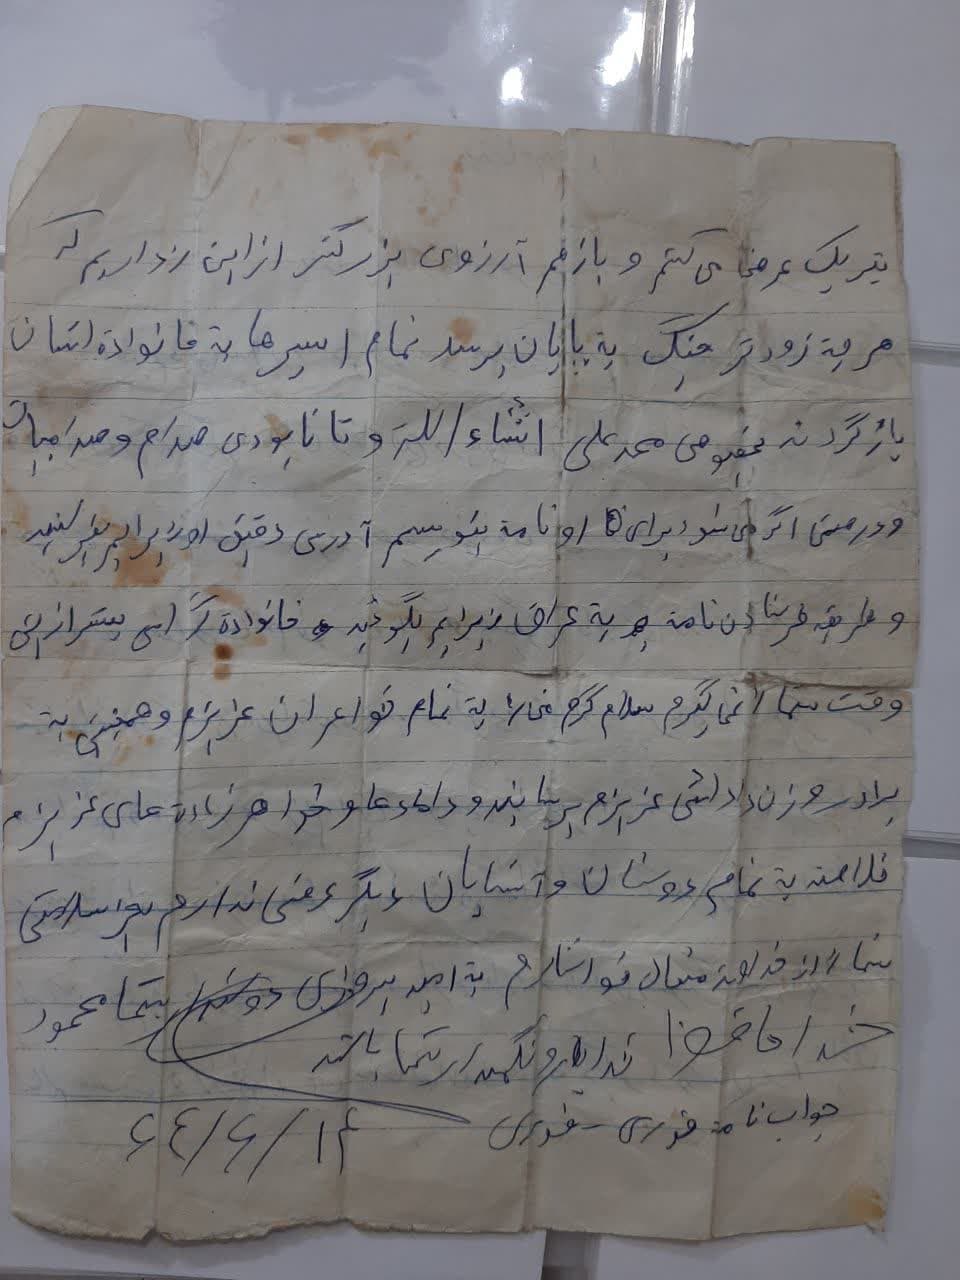 تبریک عرض می کنم و باز هم آرزوی بزرگتر از این نداریم که
هر چه زودتر جنگ به پایان برسد تمام اسیرها به خانواده اشان
بازگردند بخصوص محمد علی انشاء الله و تا نابودی صدام و صدامیان
و در ضمن اگر می شود برای او نامه بنویسم آدرس دقیق او را برایم بفرستید
و طریقه فرستادن نامه به عراق را برایم بگوئید خانواده گرامی بیشتر از این
وقت شما را نمی گیرم سلام گرم مرا به تمام خواهران عزیزم و همچنین به
برادر و زن داداش عزیزم برسانید و دامادها و خواهرزاده های عزیزم
خلاصه به تمامی دوستان و آشنایان دیگر عرضی ندارم بجز سلامتی
شما را از خداوند متعال خواستارم به امید پیروزی شما محمود
خدا حافظ خدا یار و نگهدار شما باشد
جواب نامه فوری - فوری
۶٤/۶/۱۴